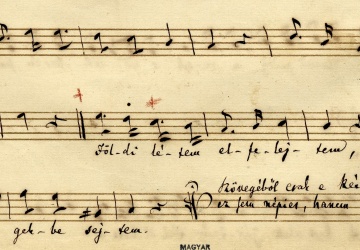 Föl-di lé-tem el-fe-lej-tem,
Szövegéből csak e
ez sem népies, hanem
gek-be sej-tem.
MAGYAR